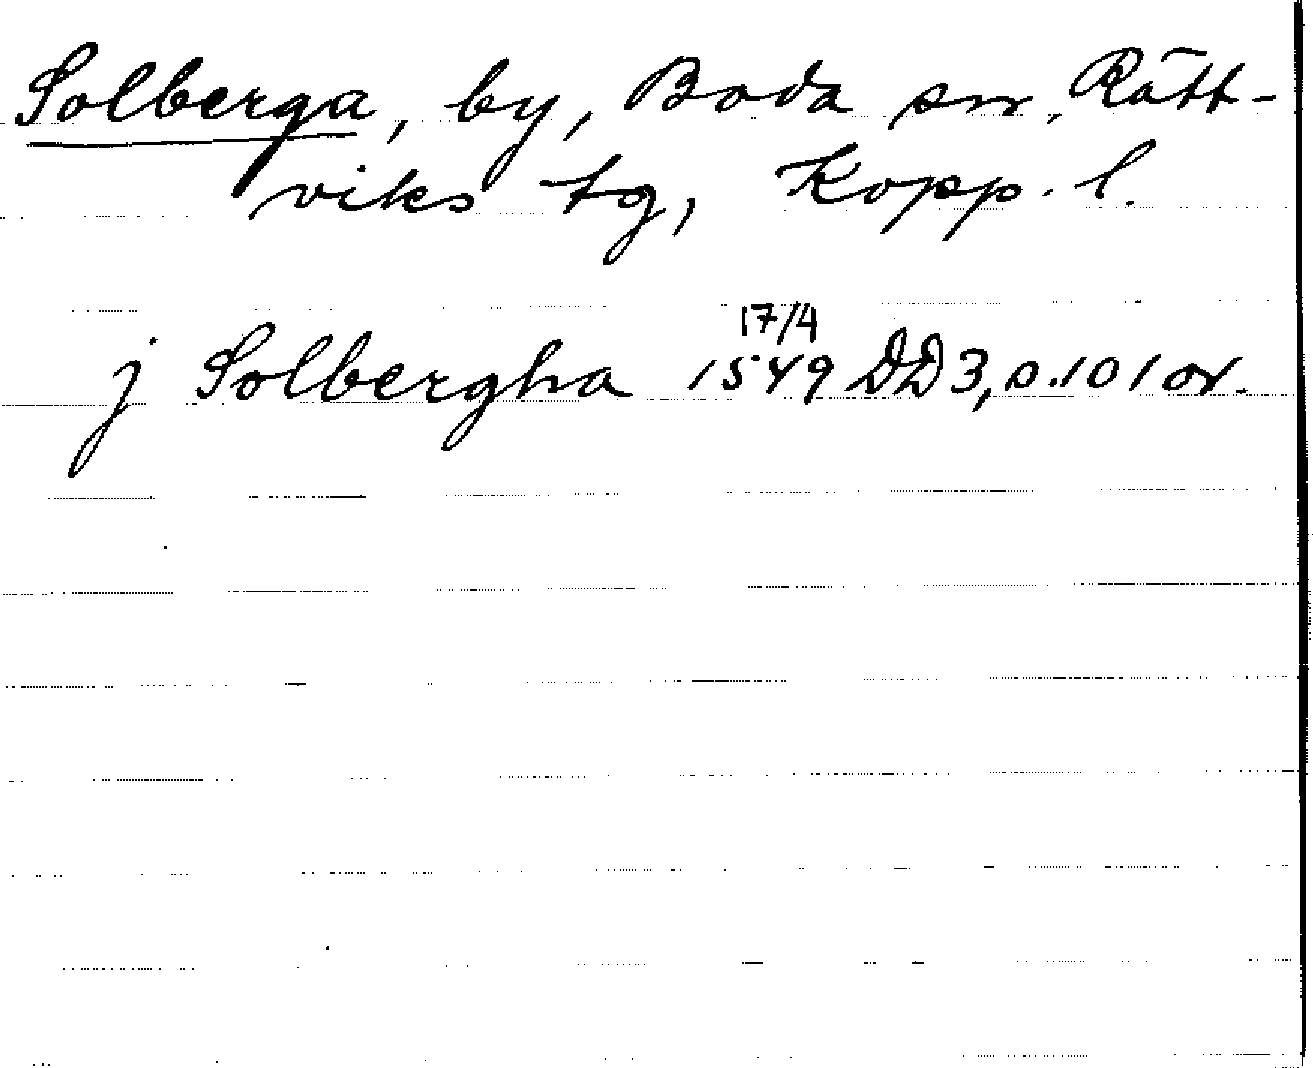 Solberga, by, Boda sn, Rätt-
viks tg, Kopp. l.
17/4
j Solbergha 1549 DD 3, s. 101 or.